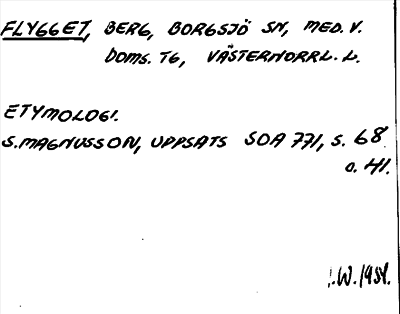 FLYGGET, BERG, BORGSJÖ SN, MED. V.
DOMS. TG, VÄSTERNORRL. L.
ETYMOLOGI.
S. MAGNUSSON, UPPSATS SOA 771, S. 68
O. 41.
I.W. 1981.